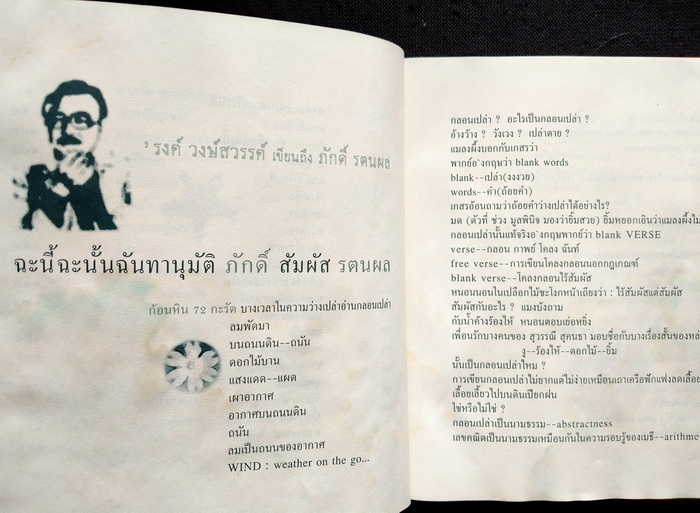 'รงค์ วงษ์สวรรค์ เขียนถึง ภักดิ์ รตนผล
ฉะนี้ฉะนั้นฉันทานุมัติ ภักดิ์ สัมผัส รตนผล
ก้อนหิน 72 กะรัต บางเวลาในความว่างเปล่าอ่านกลอนเปล่า
ลมพัดมา
บนถนนดิน--ถนัน
ดอกไม้บาน
แสงแดด--แผด
เผาอากาศ
อากาศบนถนนดิน
ถนัน
ลมเป็นถนนของอากาศ
WIND : weather on the go...
กลอนเปล่า ? อะไรเป็นกลอนเปล่า ?
อ้างว้าง ? วังเวง ? เปล่าดาย ?
แมลงผึ้งบอกกับเกสรว่า
พากย์อังกฤษว่า blank words
blank--เปล่า(งงงวย)
words--คำ(ถ้อยคำ)
เกสรอ้อนถามว่าถ้อยคำว่างเปล่าได้อย่างไร?
มด (ตัวที่ ช่วง มูลพินิจ มองว่ายิ้มสวย) ยิ้มหยอกเอินว่าแมลงผึ้งไม่
กลอนเปล่านั้นแท้จริงอังกฤษพากย์ว่า blank VERSE
verse--กลอน กาพย์ โคลง ฉันท์
free verse--การเขียนโคลงกลอนนอกกฎเกณฑ์
blank verse--โคลงกลอนไร้สัมผัส
หนอนนอนในเปลือกไม้ชะโงกหน้าเถียงว่า : ไร้สัมผัสแต่สัมผัส
สัมผัสกับอะไร ? แมงบังถาม
กับน้ำค้างร้องไห้ หนอนตอบเย่อหยิ่ง
เพื่อนรักบางคนของ สุวรรณี สุคนธา มอบชื่อกับบางเรื่องสั้นของหล่
งู--ร้องไห้--ดอกไม้--ยิ้ม
นั้นเป็นกลอนเปล่าไหม ?
การเขียนกลอนเปล่าไม่ยากแต่ไม่ง่ายเหมือนเถาเครือฟักแฟงลดเลี้อย
เลื้อยเลี้ยวไปบนดินเปียกฝน
ใช่หรือไม่ใช่ ?
กลอนเปล่าเป็นนามธรรม--abstractness
เลขคณิตเป็นนามธรรมเหมือนกันในความรอบรู้ของเฌธี--arithme